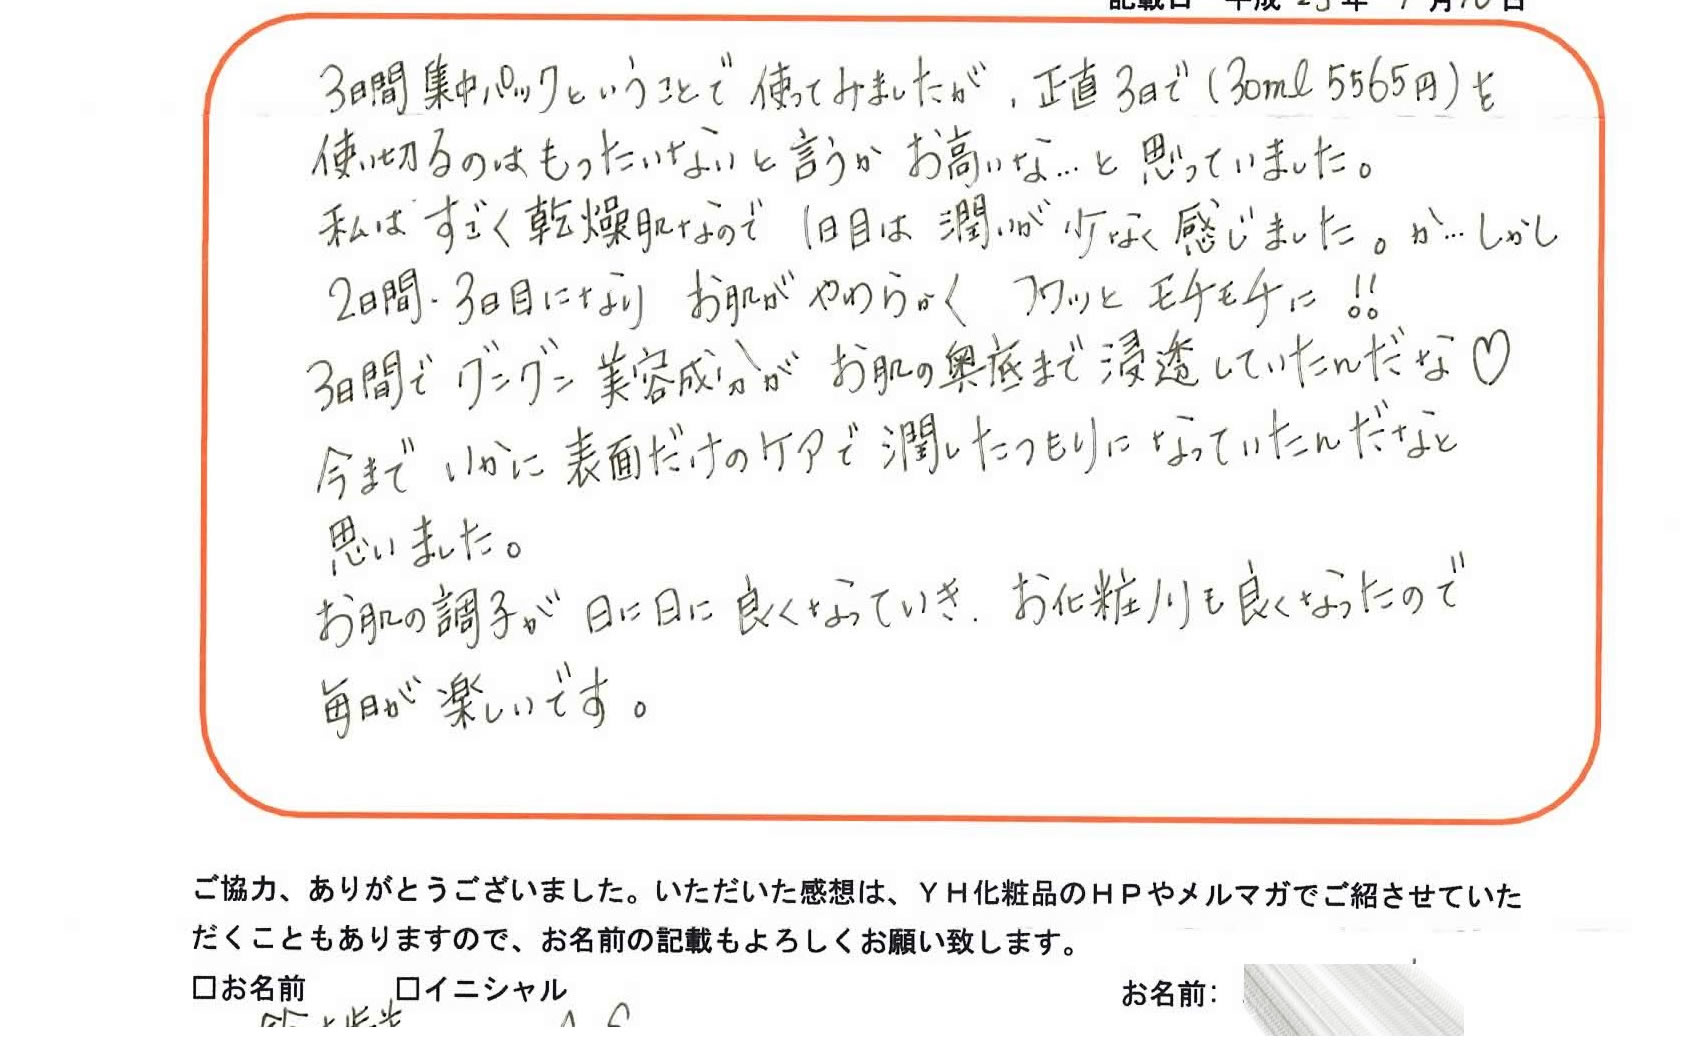 記載日 平成23年 月10日
3日間集中パックということで使ってみましたが、正直3日で(30ml 5565円)を
使い切るのはもったいないと言うか お高いな…と 思っていました。
私は すごく乾燥肌なので 1日目は 潤いが 少なく感じました。が…しかし
2日間・3日目になり お肌がやわらかく フワッと モチモチに!!
3日間でグングン 美容成分が お肌の奥底まで浸透していたんだな♡
今まで いかに 表面だけのケアで 潤したつもりになっていたんだなと
思いました。
お肌の調子が 日に日に 良くなっていき、お化粧ノリも良くなったので
毎日が 楽しいです。
ご協力、ありがとうございました。いただいた感想は、YH化粧品のHPやメルマガでご紹させていた
だくこともありますので、お名前の記載もよろしくお願い致します。
□お名前 □イニシャル お名前: